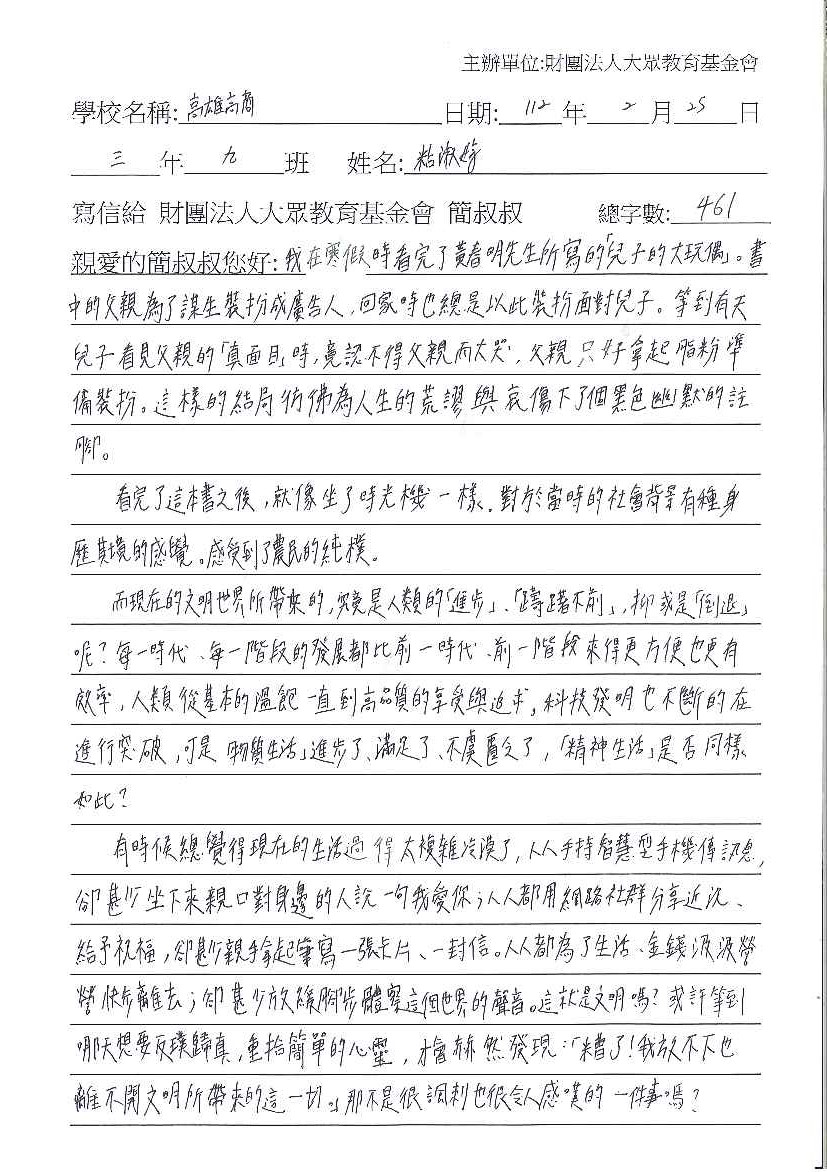 主辦單位:財團法人大眾教育基金會
學校名稱: 高雄高商 日期: 112 年 2 月 25 日
三 年 九 班 姓名: 粘淑婷
寫信給 財團法人大眾教育基金會 簡叔叔 總字數: 461
親愛的簡叔叔您好: 我在寒假時看完了黃春明先生所寫的「兒子的大玩偶」。書
中的父親為了謀生裝扮成廣告人,回家時也總是以此裝扮面對兒子。等到有天
兒子看見父親的「真面目」時,竟認不得父親而大哭,父親只好拿起脂粉準
備裝扮。這樣的結局彷彿為人生的荒謬與哀傷下了個黑色幽默的註
腳。
看完了這本書之後,就像坐了時光機一樣,對於當時的社會背景有種身
歷其境的感覺。感受到了農民的純樸。
而現在的文明世界所帶來的,究竟是人類的「進步」、「躊躇不前」,抑或是「倒退」
呢?每一時代、每一階段的發展都比前一時代、前一階段來得更方便也更有
效率,人類從基本的溫飽一直到高品質的享受與追求,科技發明也不斷的在
進行突破,可是「物質生活」進步了、滿足了、不虞匱乏了,「精神生活」是否同樣
如此?
有時候總覺得現在的生活過得太複雜冷漠了,人人手持智慧型手機傳訊息,
卻甚少坐下來親口對身邊的人說一句我愛你;人人都用網路社群分享近況、
給予祝福,卻甚少親手拿起筆寫一張卡片、一封信。人人都為了生活、金錢汲汲營
營快步離去;卻甚少放緩腳步體察這個世界的聲音。這就是文明嗎?或許等到
哪天想要反璞歸真,重拾簡單的心靈,才會赫然發現:「糟了!我放不下也
離不開文明所帶來的這一切。」那不是很諷刺也很令人感嘆的一件事嗎?